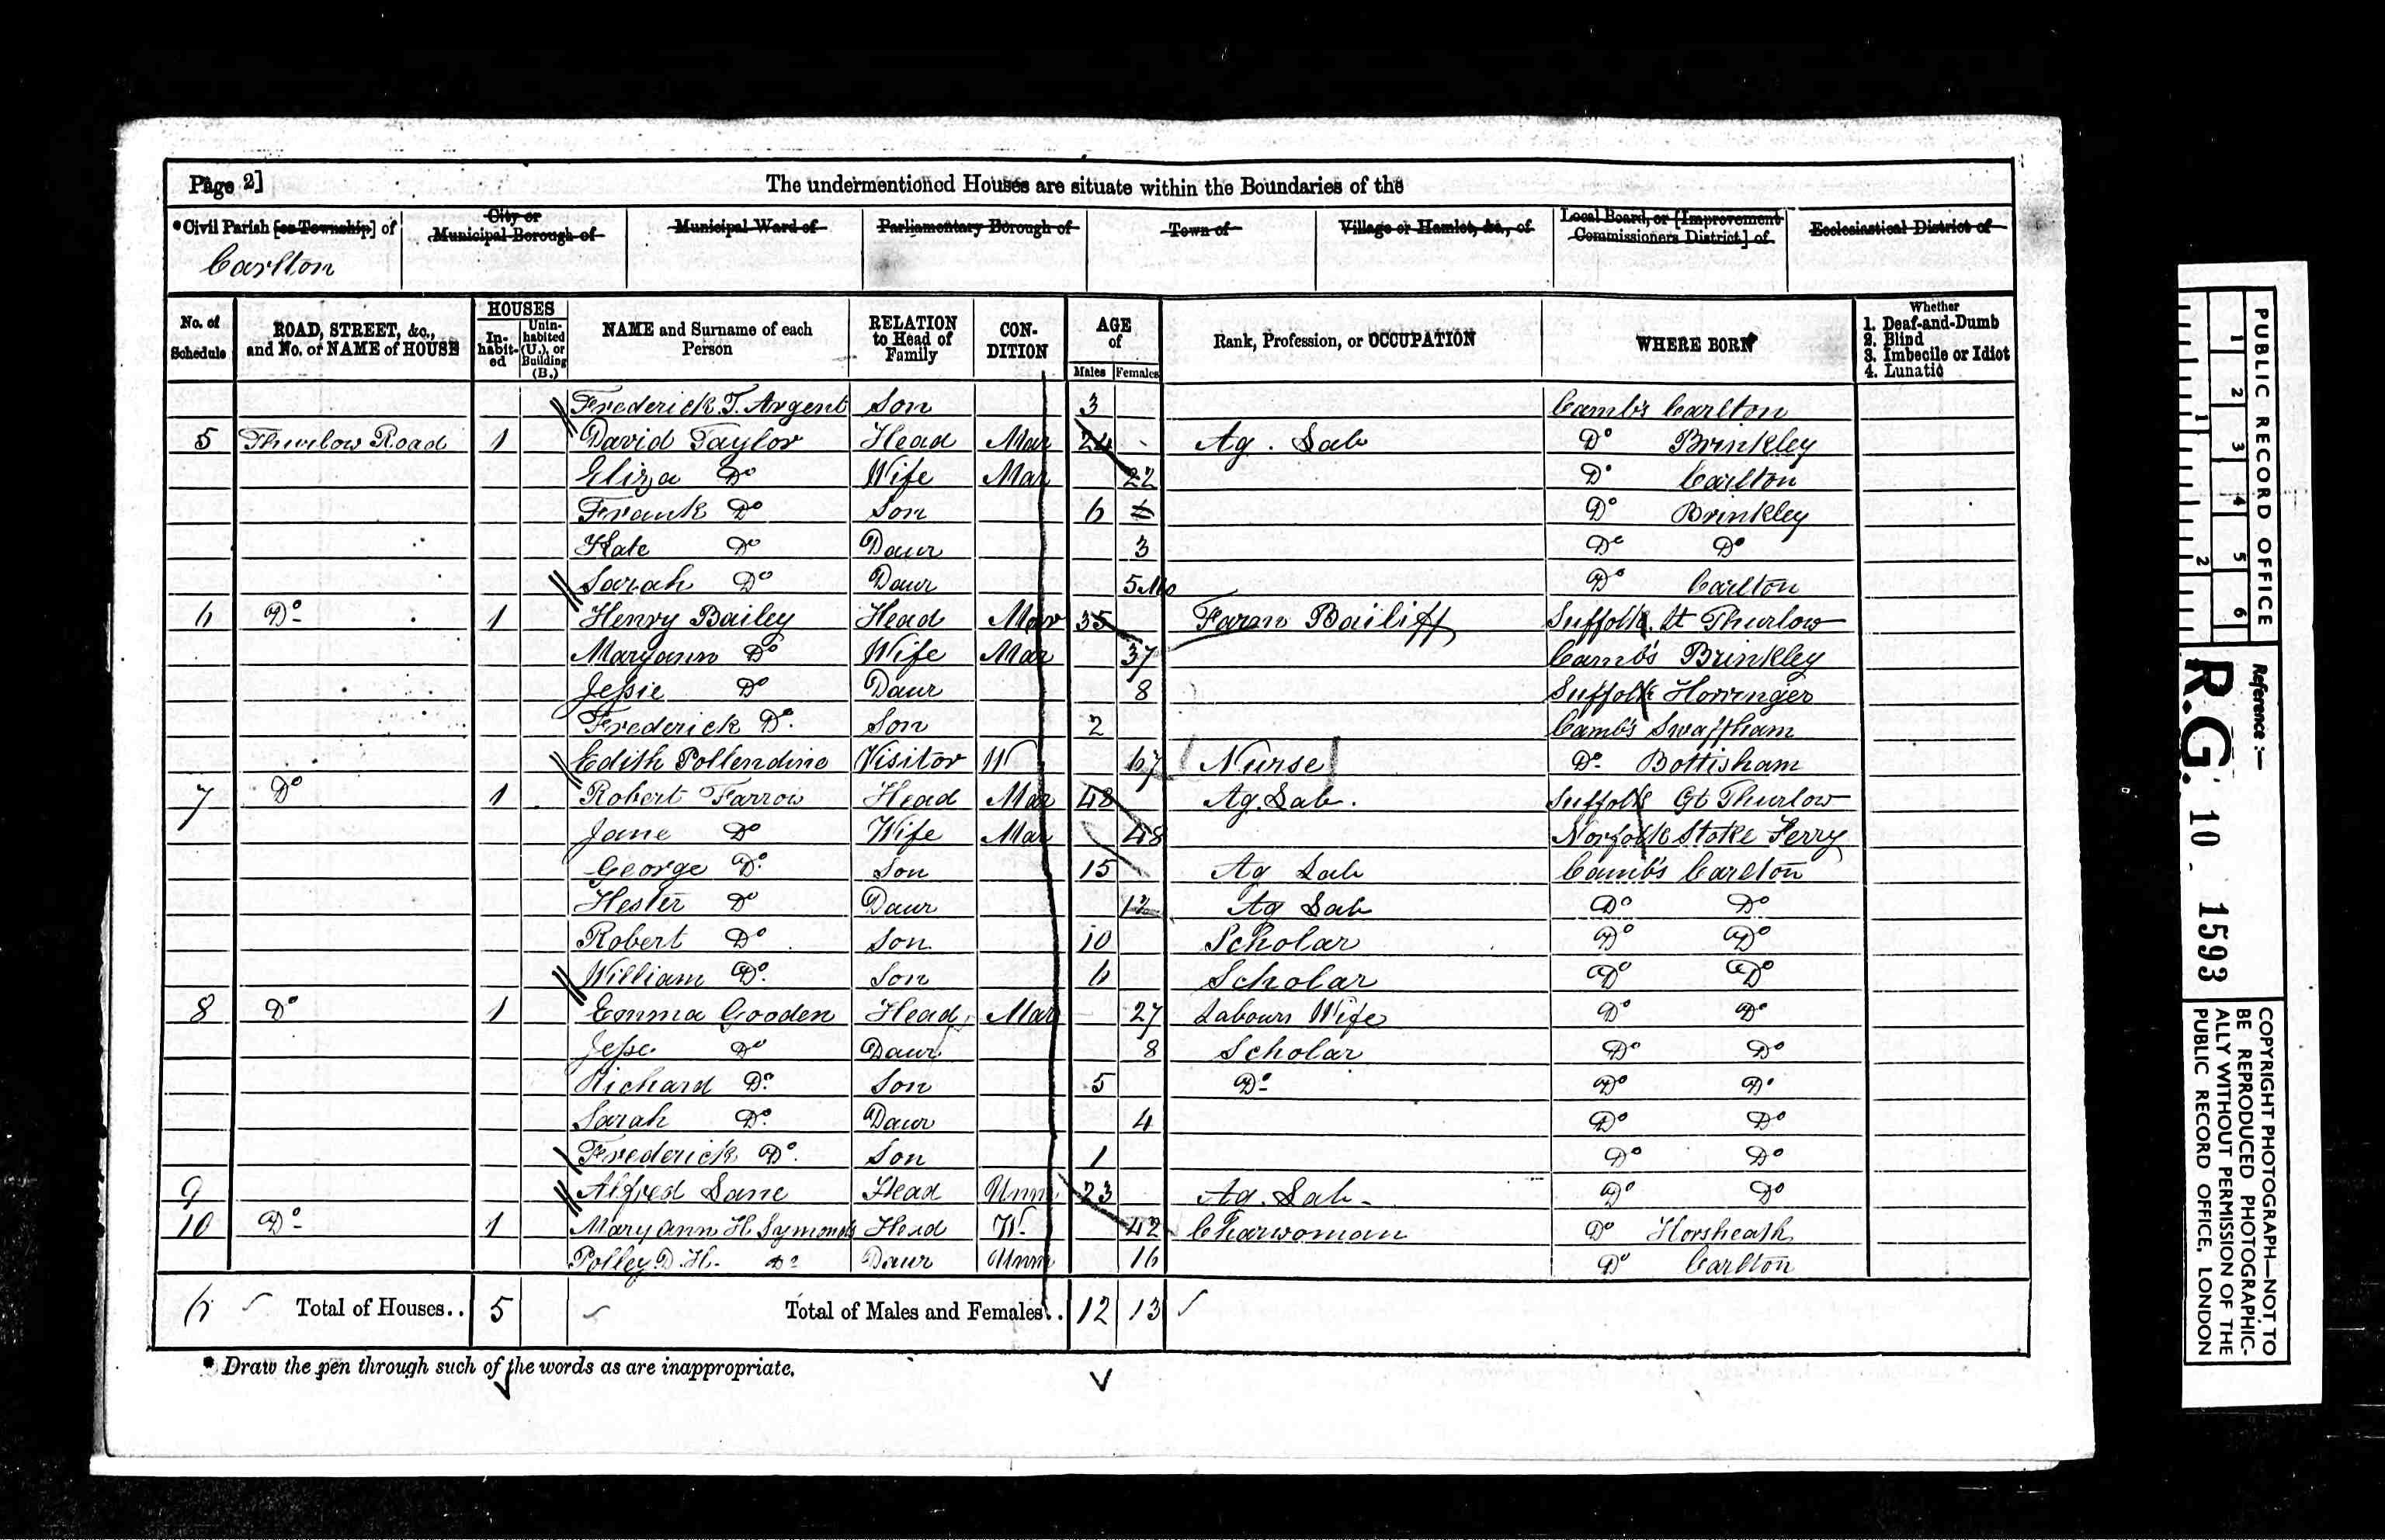 Page 2] The undermentioned Houses are situate within the Boundaries of the
*Civil Parish [or Township] of City or Municipal Borough of Municipal Ward of Parliamentary Borough of Town of Village or Hamlet, &c., of Local Board, or [Improvement Commissioners District] of Ecclesiastical District of
Carlton
No. of Schedule ROAD, STREET, &c., and No. or NAME of HOUSE HOUSES Inhabited Uninhabited (U.), or Building (B.) NAME and Surname of each Person RELATION to Head of Family CONDITION AGE of Males Females Rank, Profession, or OCCUPATION WHERE BORN Whether 1. Deaf-and-Dumb 2. Blind 3. Imbecile or Idiot 4. Lunatic
Frederick T. Argent Son 3 Camb's Carlton
5 Thurlow Road 1 David Taylor Head Mar 24 Ag. Lab Do Brinkley
Eliza Do Wife Mar 22 Do Carlton
Frank Do Son 6 6 Do Brinkley
Kate Do Daur 3 Do Do
Sarah Do Daur 5 Mo Do Carlton
6 Do 1 Henry Bailey Head Mar 35 Farm Bailiff Suffolk Lt Thurlow
Maryann Do Wife Mar 37 Camb's Brinkley
Jessie Do Daur 8 Suffolk Horringer
Frederick Do. Son 2 Camb's Swaffham
Edith Pollendine Visitor W 67 Nurse Do. Bottisham
7 Do 1 Robert Farrow Head Mar 48 Ag. Lab. Suffolk Gt Thurlow
Jane Do Wife Mar 48 Norfolk Stoke Ferry
George Do. Son 15 Ag Lab Camb's Carlton
Hester Do Daur 12 Ag Lab Do Do
Robert Do Son 10 Scholar Do Do
William Do. Son 6 Scholar Do Do
8 Do 1 Emma Gooden Head Mar 27 Labours Wife Do Do
Jesse Do Daur 8 Scholar Do Do
Richard Do. Son 5 Do Do Do
Sarah Do. Daur 4 Do Do
Frederick Do. Son 1 Do Do
9 Alfred Lane Head Unm 23 Ag. Lab. Do Do
10 Do 1 Mary Ann H Symonds Head W. 42 Charwoman Do Horsheath
Polley D. H. Do Daur Unm 16 Do Carlton
6 Total of Houses.. 5 Total of Males and Females.. 12 13
* Draw the pen through such of the words as are inappropriate.
PUBLIC RECORD OFFICE
1 2 3 4 5 6
1 2
Reference :-
R.G. 10 1593
COPYRIGHT PHOTOGRAPH—NOT TO
BE REPRODUCED PHOTOGRAPHIC-
ALLY WITHOUT PERMISSION OF THE
PUBLIC RECORD OFFICE, LONDON